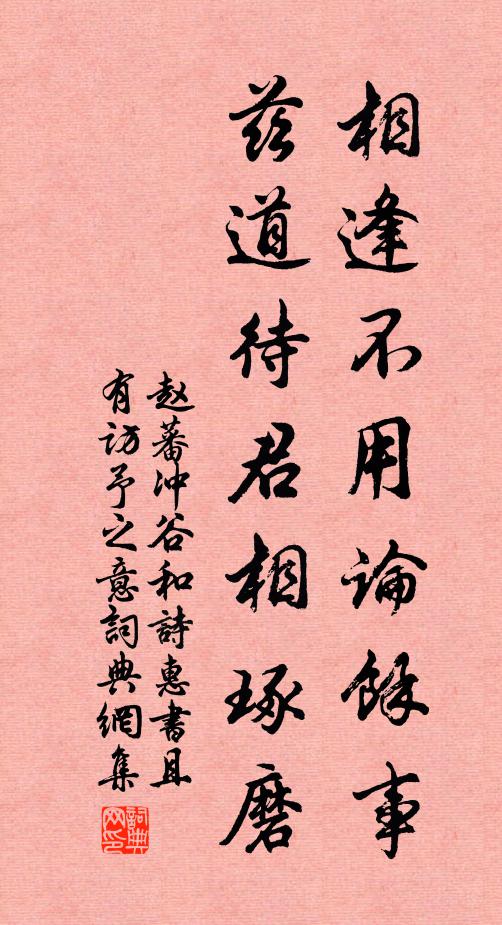 相逢不用論餘事
茲道待君相琢磨
赵蕃冲谷和詩惠書且
有訪予之意詞典網集
詞典
网印